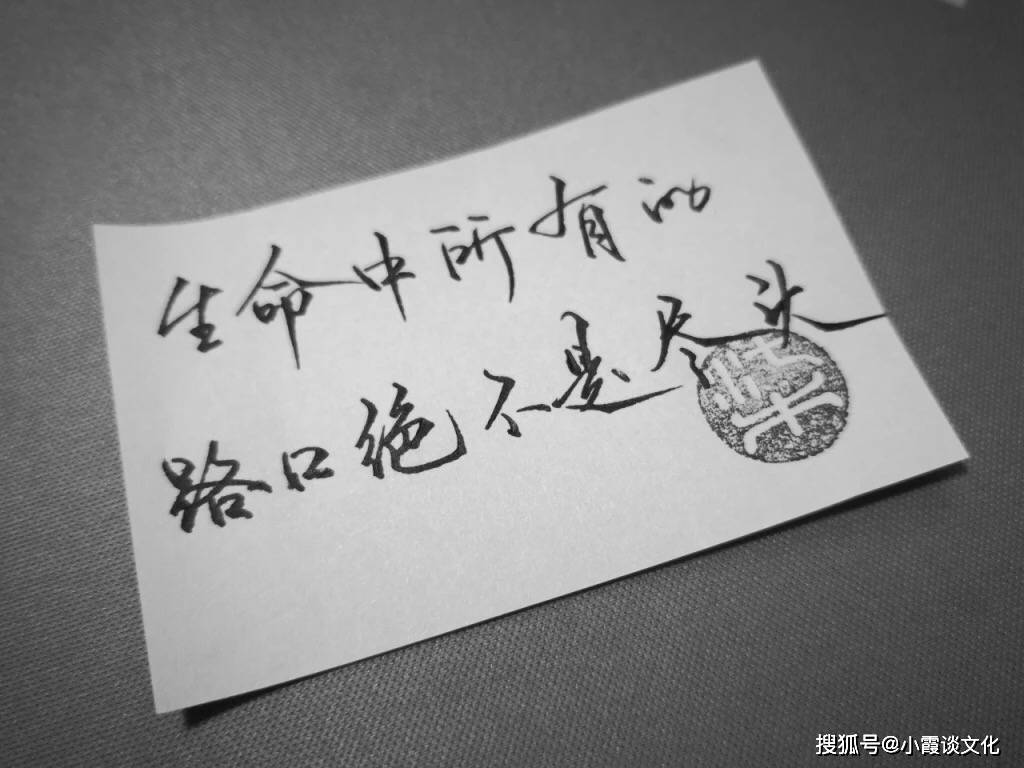 生命中所有的
路口绝不是尽头
搜狐号@小霞谈文化